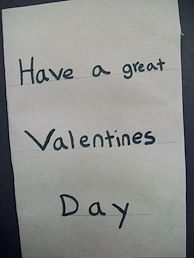 Have a great
Valentines
Day